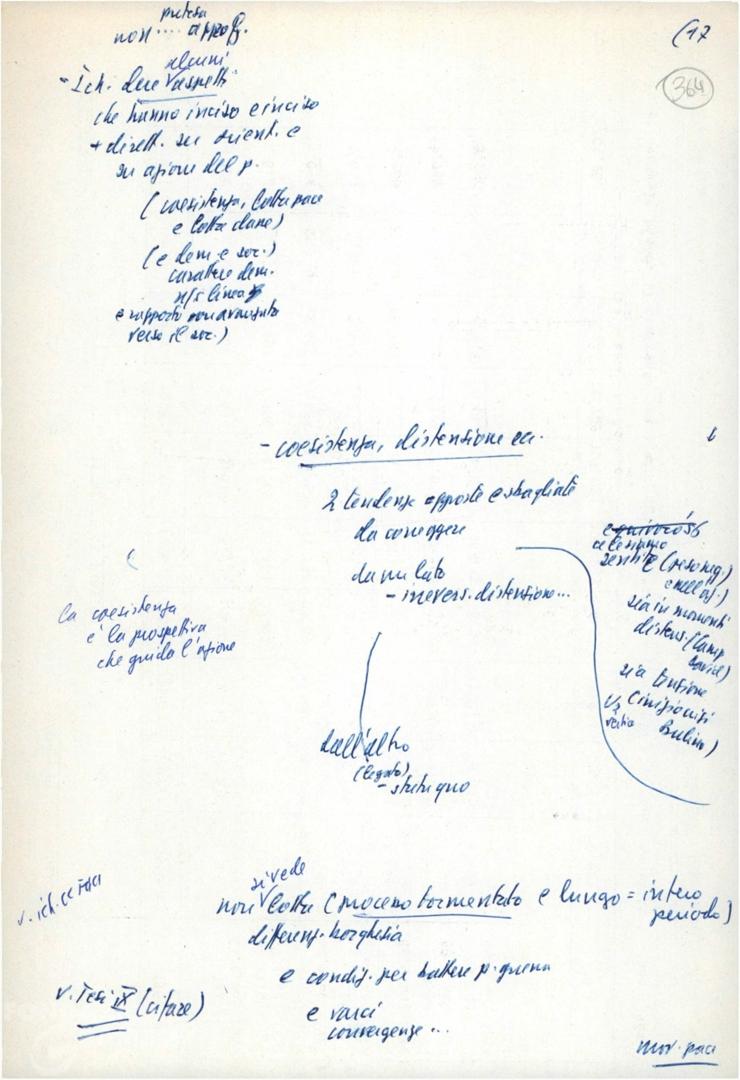 (17
364
pretesa
non .... approf.
alcuni
- Sch. due aspetti
che hanno inciso e inciso
+ dirett. su orient. e
su azione del p.
(coesistenza, lotta pace
e lotta classe)
(e dem. e soc.)
carattere dem.
ns/ linea
e rapporto non avanzata
verso il soc.)
- coesistenza, distensione ecc.
2 tendenze opposte e sbagliate
da correggere
da un lato
- irrevers. distensione...
la coesistenza
è la prospettiva
che guida l'azione
sia in momenti
distens. (Camp
David)
sia tensione
Berlino)
dall'altro
(legato)
- statu quo
si vede
non lotta (processo tormentato e lungo = intero
periodo)
differenz. borghesia
e condiz. per battere p. guerra
e varie
convergenze ...
v. Tesi IX (citare)
mov. pace